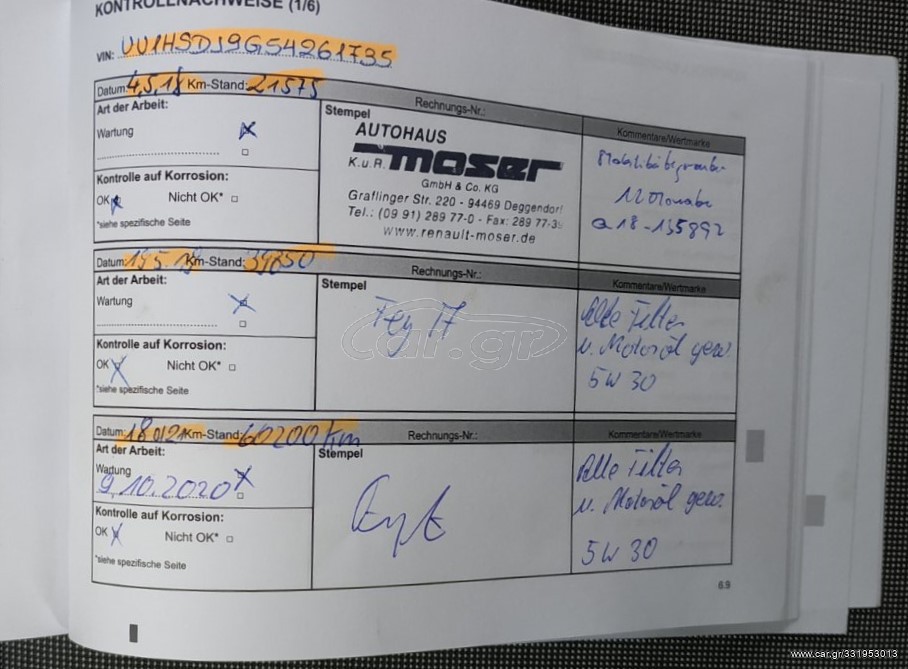 KONTROLLNACHWEISE (1/6)
VIN: UU1HSDJ9G54261735
Datum: 4.5.18 Km-Stand: 21575
Rechnungs-Nr.:
Kommentare/Wertmarke
Art der Arbeit:
Wartung
Kontrolle auf Korrosion:
OK Nicht OK*
*siehe spezifische Seite
Stempel
AUTOHAUS
K.u.R. moser
GmbH & Co. KG
Graflinger Str. 220 - 94469 Deggendorf
Tel.: (09 91) 289 77-0 - Fax: 289 77-3
www.renault-moser.de
12 Monate
a18-135892
Datum: Km-Stand:
Rechnungs-Nr.:
Kommentare/Wertmarke
Art der Arbeit:
Wartung
Kontrolle auf Korrosion:
OK Nicht OK*
*siehe spezifische Seite
Stempel
Alle Filter
u. Motoröl gew.
5W30
car.gr
Datum: Km-Stand: 60200 km
Rechnungs-Nr.:
Kommentare/Wertmarke
Art der Arbeit:
Wartung
9.10.2020
Kontrolle auf Korrosion:
OK Nicht OK*
*siehe spezifische Seite
Stempel
Alle Filter
u. Motoröl gew.
5W30
6.9
www.car.gr/331953013